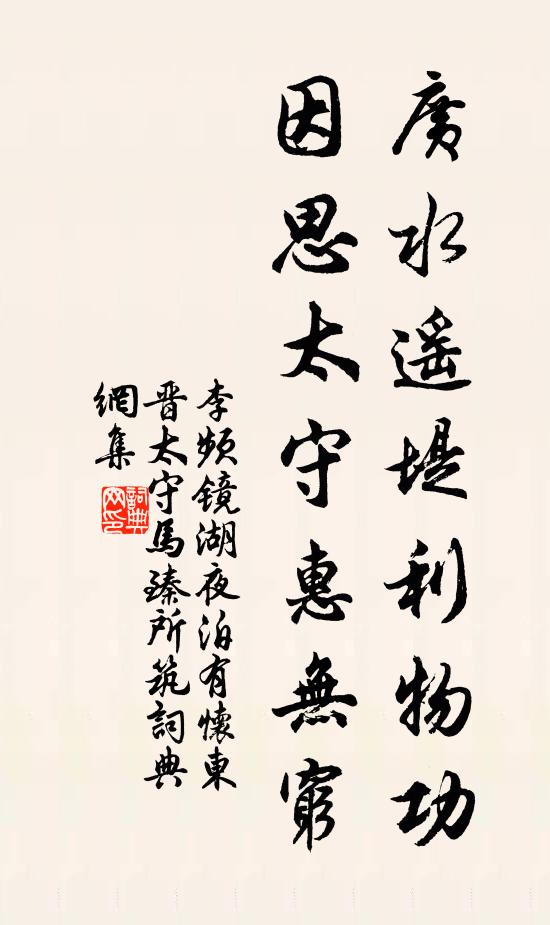 廣水遥堤利物功
因思太守惠無窮
李頻鏡湖夜泊有懷東
晋太守馬臻所筑詞典
網集
詞典
网印